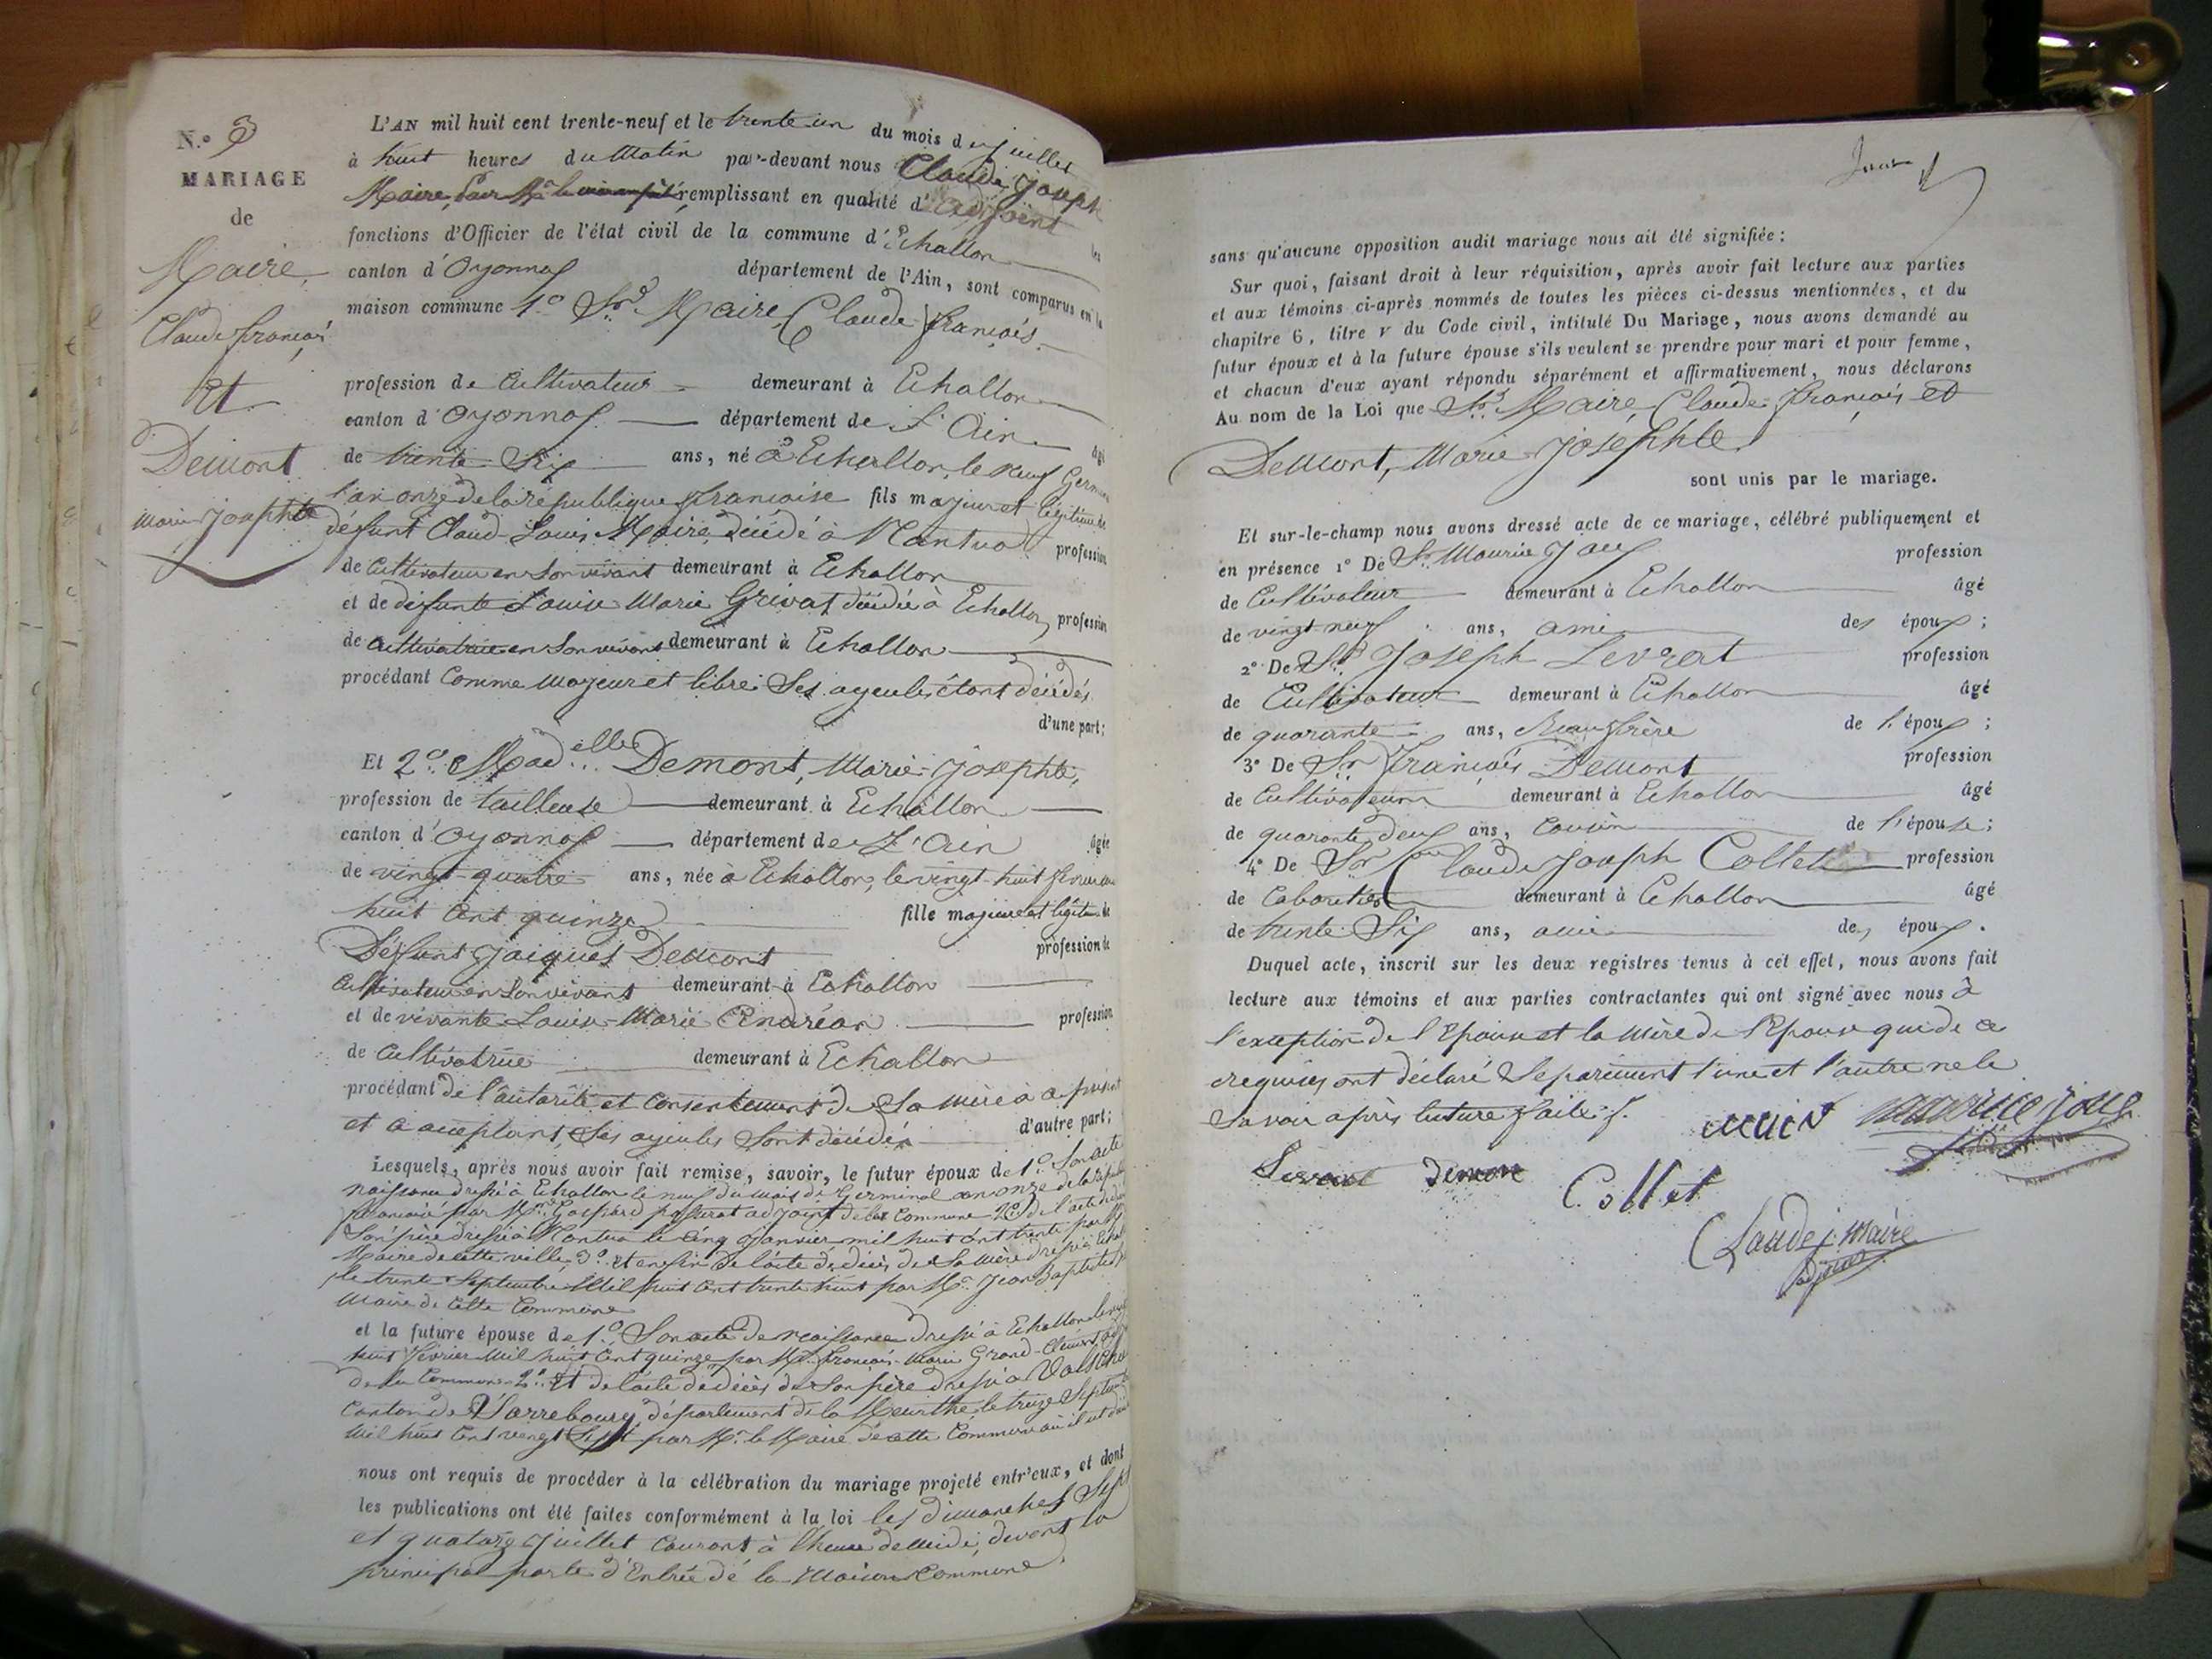 N.o 3
MARIAGE
de
Maire,
Claude françois
Et
Demont
Marie Josephte
L'AN mil huit cent trente-neuf et le trente un du mois de juillet
à huit heures du Matin par-devant nous Claude Joseph
Maire, remplissant en qualité d'adjoint les
fonctions d'Officier de l'état civil de la commune d'Echallon
canton d'Oyonnax département de l'Ain, sont comparus en la
maison commune 1.o Sr. Maire, Claude françois
profession de Cultivateur demeurant à Echallon
canton d'Oyonnax département de L'Ain âgé
de trente Six ans, né à Echallon, le neuf Germinal
l'an onze de la république française fils majeur et légitime de
défunt Claud-Louis Maire, décédé à Nantua profession
de Cultivateur en Son vivant demeurant à Echallon
et de défunte Louise Marie Grivat décédée à Echallon, profession
de Cultivatrice en Son vivant demeurant à Echallon
procédant Comme Majeur et libre Ses ayeuls étant décédés
d'une part;
Et 2.o Madelle Demont, Marie-Josephte,
profession de tailleuse demeurant à Echallon
canton d'Oyonnax département de L'Ain âgée
de vingt-quatre ans, née à Echallon, le vingt-huit février
huit Cent quinze fille majeure et légitime de
Défunt Jaques Demont profession de
Cultivateur en Son vivant demeurant à Echallon
et de vivante Louise-Marie Andréan profession
de Cultivatrice demeurant à Echallon
procédant de l'autorité et Consentement de Sa mère à ce présent
et à acceptant, Ses ayeuls Sont décédés d'autre part;
Lesquels, après nous avoir fait remise, savoir, le futur époux de 1.o Son acte
naissance dressé à Echallon le neuf du mois de Germinal an onze de la république
française par Mr. Gaspard adjoint de la Commune 2.o de l'acte de décès
Son père dressé à Nantua le Cinq Janvier mil huit Cent trente par Mr.
Maire de cette ville, 3.o et enfin de l'acte de décès de Sa mère dressé à Echallon
le trente Septembre Mil huit Cent trente huit par Mr. Jean Baptiste
Maire de Cette Commune
et la future épouse de 1.o Son acte de naissance dressé à Echallon le vingt
huit février Mil huit Cent quinze par Mr. françois-Marie Grand-Clément adjoint
de la Commune 2.o Et de l'acte de décès de Son père dressé à
Canton de Sarrebourg, département de la Meurthe, le treize Septembre
Mil huit Cent vingt Sept par Mr. le Maire de cette Commune où il est décédé
nous ont requis de procéder à la célébration du mariage projeté entr'eux, et dont
les publications ont été faites conformément à la loi les dimanches Sept
et quatorze Juillet Courant à l'heure de Midi, devant la
principal porte d'Entrée de la Maison Commune
sans qu'aucune opposition audit mariage nous ait été signifiée:
Sur quoi, faisant droit à leur réquisition, après avoir fait lecture aux parties
et aux témoins ci-après nommés de toutes les pièces ci-dessus mentionnées, et du
chapitre 6, titre V du Code civil, intitulé Du Mariage, nous avons demandé au
futur époux et à la future épouse s'ils veulent se prendre pour mari et pour femme,
et chacun d'eux ayant répondu séparément et affirmativement, nous déclarons
Au nom de la Loi que Sr. Maire, Claude-françois et
Demont, Marie Josephte
sont unis par le mariage.
Et sur-le-champ nous avons dressé acte de ce mariage, célébré publiquement et
en présence 1o De Sr. Maurice Joux profession
de Cultivateur demeurant à Echallon âgé
de vingt-neuf ans, ami des époux;
2o De Sr. Joseph Levrat profession
de Cultivateur demeurant à Echallon âgé
de quarante ans, Beaufrère de l'époux;
3o De Sr. françois Demont profession
de Cultivateur demeurant à Echallon âgé
de quarante deux ans, Cousin de l'épouse;
4o De Sr Claude Joseph Collet profession
de Cabaretier demeurant à Echallon âgé
de trente Six ans, ami des époux.
Duquel acte, inscrit sur les deux registres tenus à cet effet, nous avons fait
lecture aux témoins et aux parties contractantes qui ont signé avec nous à
l'exception de l'Epouse et la mère de l'Epouse qui de ce
requises ont déclaré Séparément l'une et l'autre ne le
Savoir après lecture faite.
maurice joux
Levrat Demon Collet
Claude j. Maire
adjoint